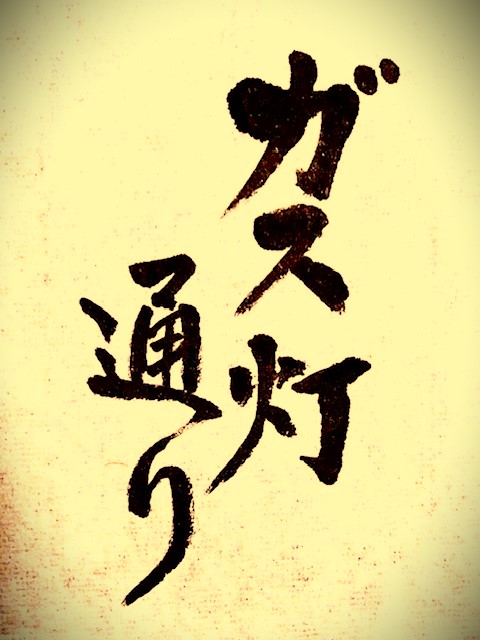 ガス灯
通り